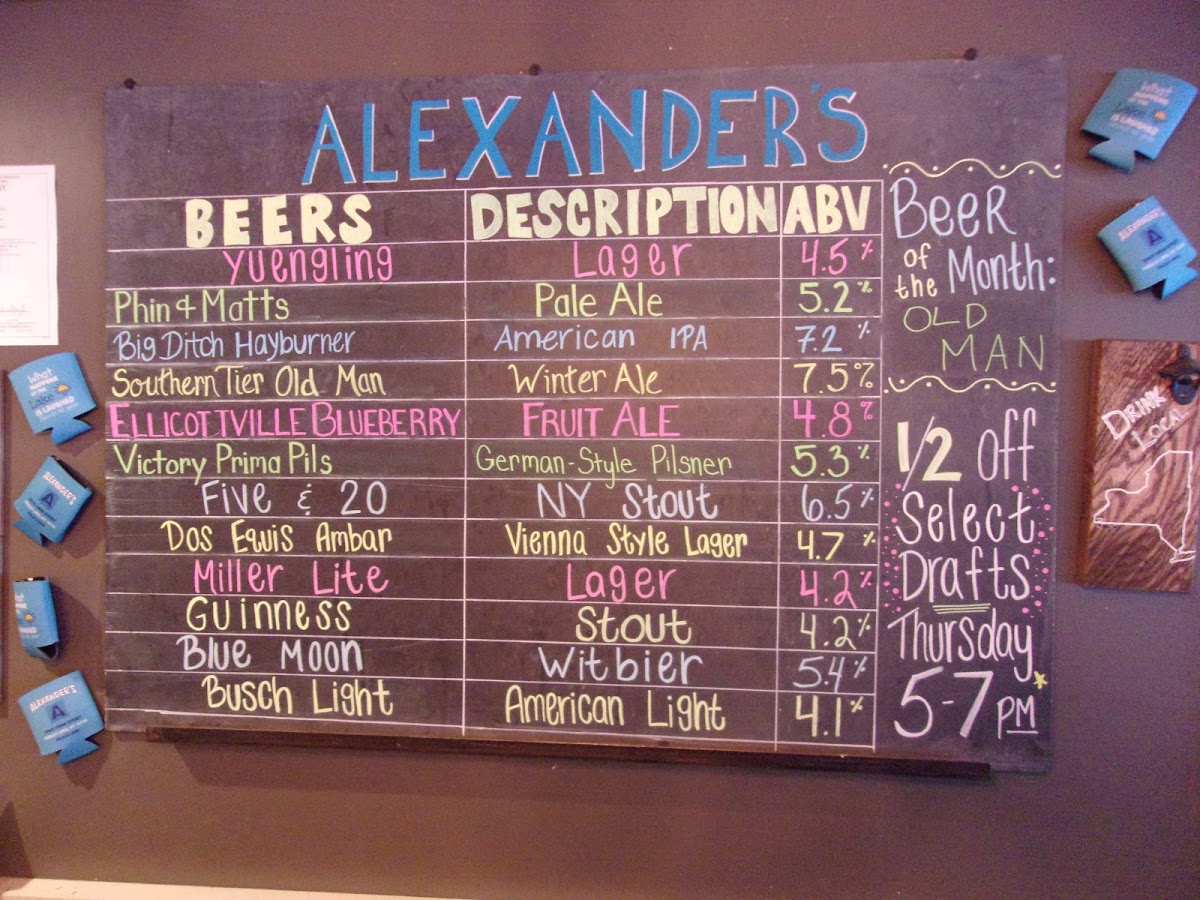 ALEXANDER'S
BEERS DESCRIPTION ABV
Yuengling Lager 4.5%
Phin & Matts Pale Ale 5.2%
Big Ditch Hayburner American IPA 7.2%
Southern Tier Old Man Winter Ale 7.5%
ELLICOTTVILLE BLUEBERRY FRUIT ALE 4.8%
Victory Prima Pils German-Style Pilsner 5.3%
Five & 20 NY Stout 6.5%
Dos Equis Ambar Vienna Style Lager 4.7%
Miller Lite Lager 4.2%
Guinness Stout 4.2%
Blue Moon Witbier 5.4%
Busch Light American Light 4.1%
Beer
of the Month:
OLD
MAN
1/2 off
Select
Drafts
Thursday
5-7 PM
DRINK
LOCAL
What
HAPPENS
Lake
IS LAUGHED
ALEXANDER'S
A
ALEXANDER'S
A
What
ALEXANDER'S
A